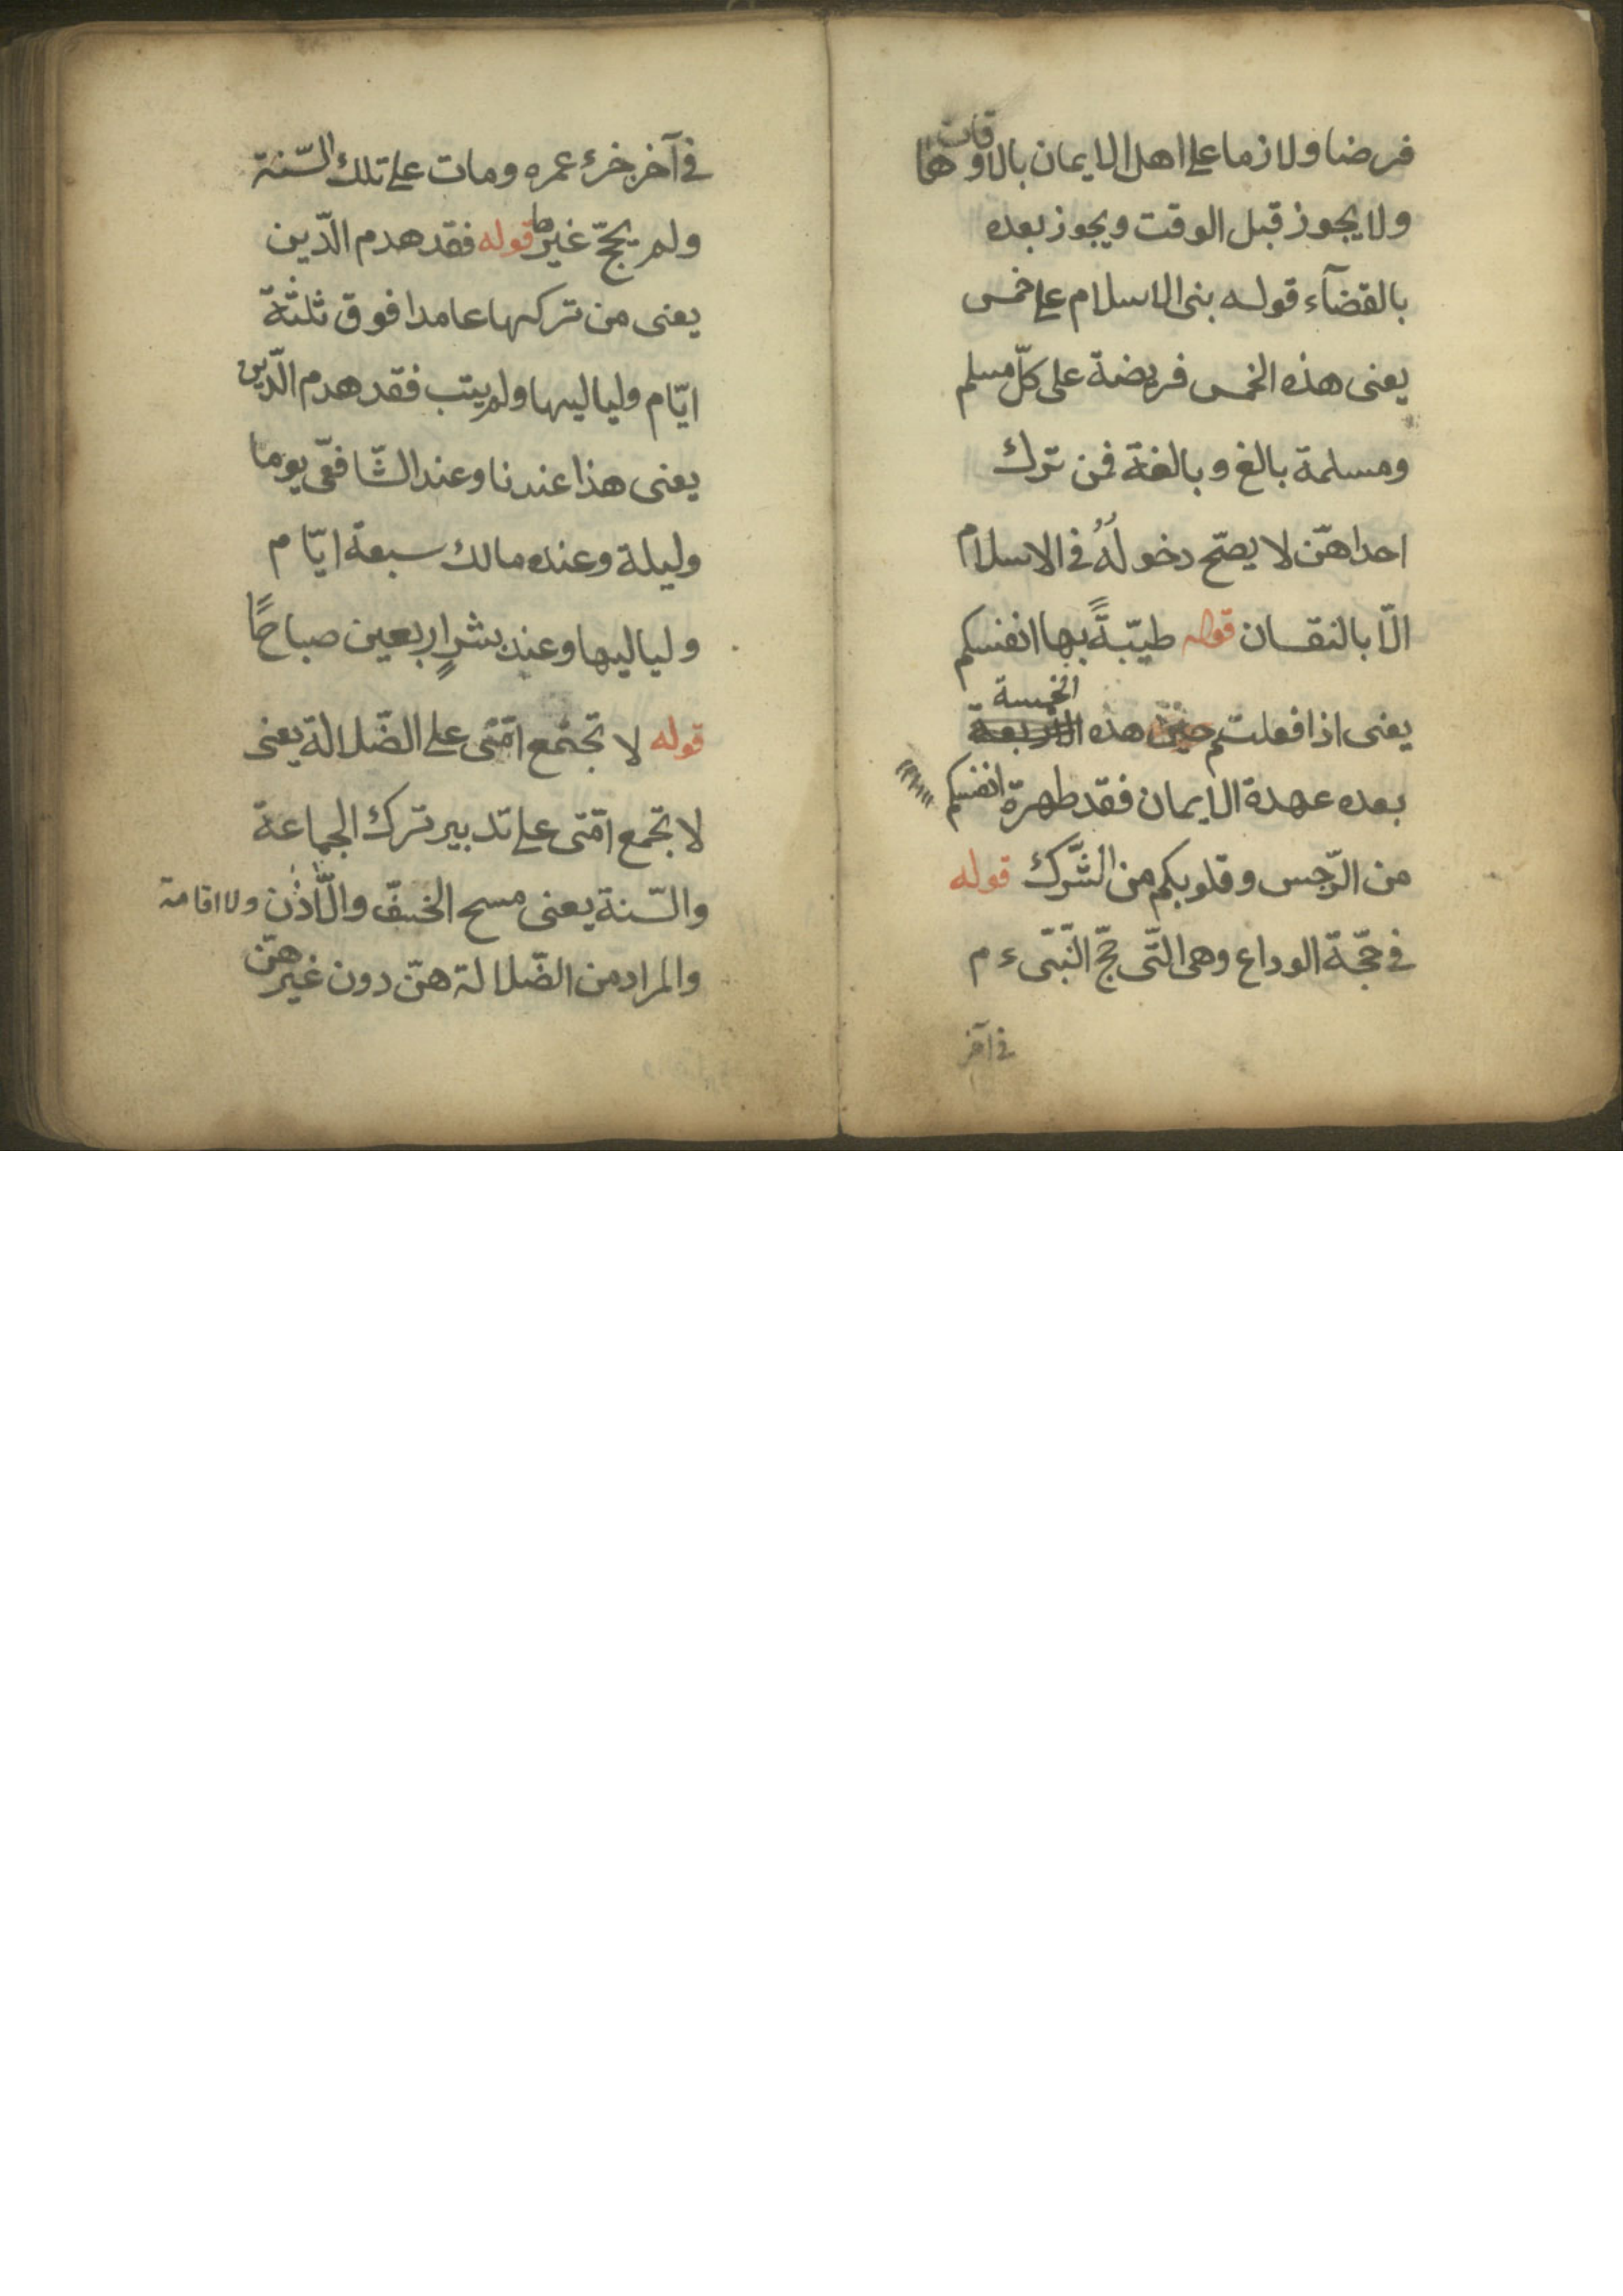 فرضا ولازما على اهل الايمان بالاوقاتها
ولا يجوز قبل الوقت ويجوز بعده
بالقضآء قوله بنى الاسلام على خمس
يعنى هذه الخمس فريضة على كلّ مسلم
ومسلمة بالغ وبالغة فمن ترك
احداهنّ لا يصحّ دخولهُ فى الاسلام
الّا بالنقسان قوله طيّبةً بها انفسكم
يعنى اذا فعلتم هذه الخمسة
بعده عهدة الايمان فقد طهرة انفسكم
من الرّجس وقلوبكم من الشّرك قوله
فى حجّة الوداع وهى التّى حجّ النّبىّ ء م
فى آخر
فى آخر عمره ومات على تلك السّنة
ولم يحجّ غيرها قوله فقد هدم الدّين
يعنى من تركها عامدا فوق ثلثة
ايّام ولياليها ولم يتب فقد هدم الدّين
يعنى هذا عندنا وعند الشّافعّى يوما
وليلة وعنده مالك سبعة ايّام
ولياليها وعند بشرٍ اربعين صباحًا
قوله لا تجتمع امّتى على الضّلالة يعنى
لا تجمع امّتى على تدبير ترك الجماعة
والسّنة يعنى مسح الخفّ والاذن ولا اقامة
والمراد من الضّلالة هنّ دون غيرهنّ